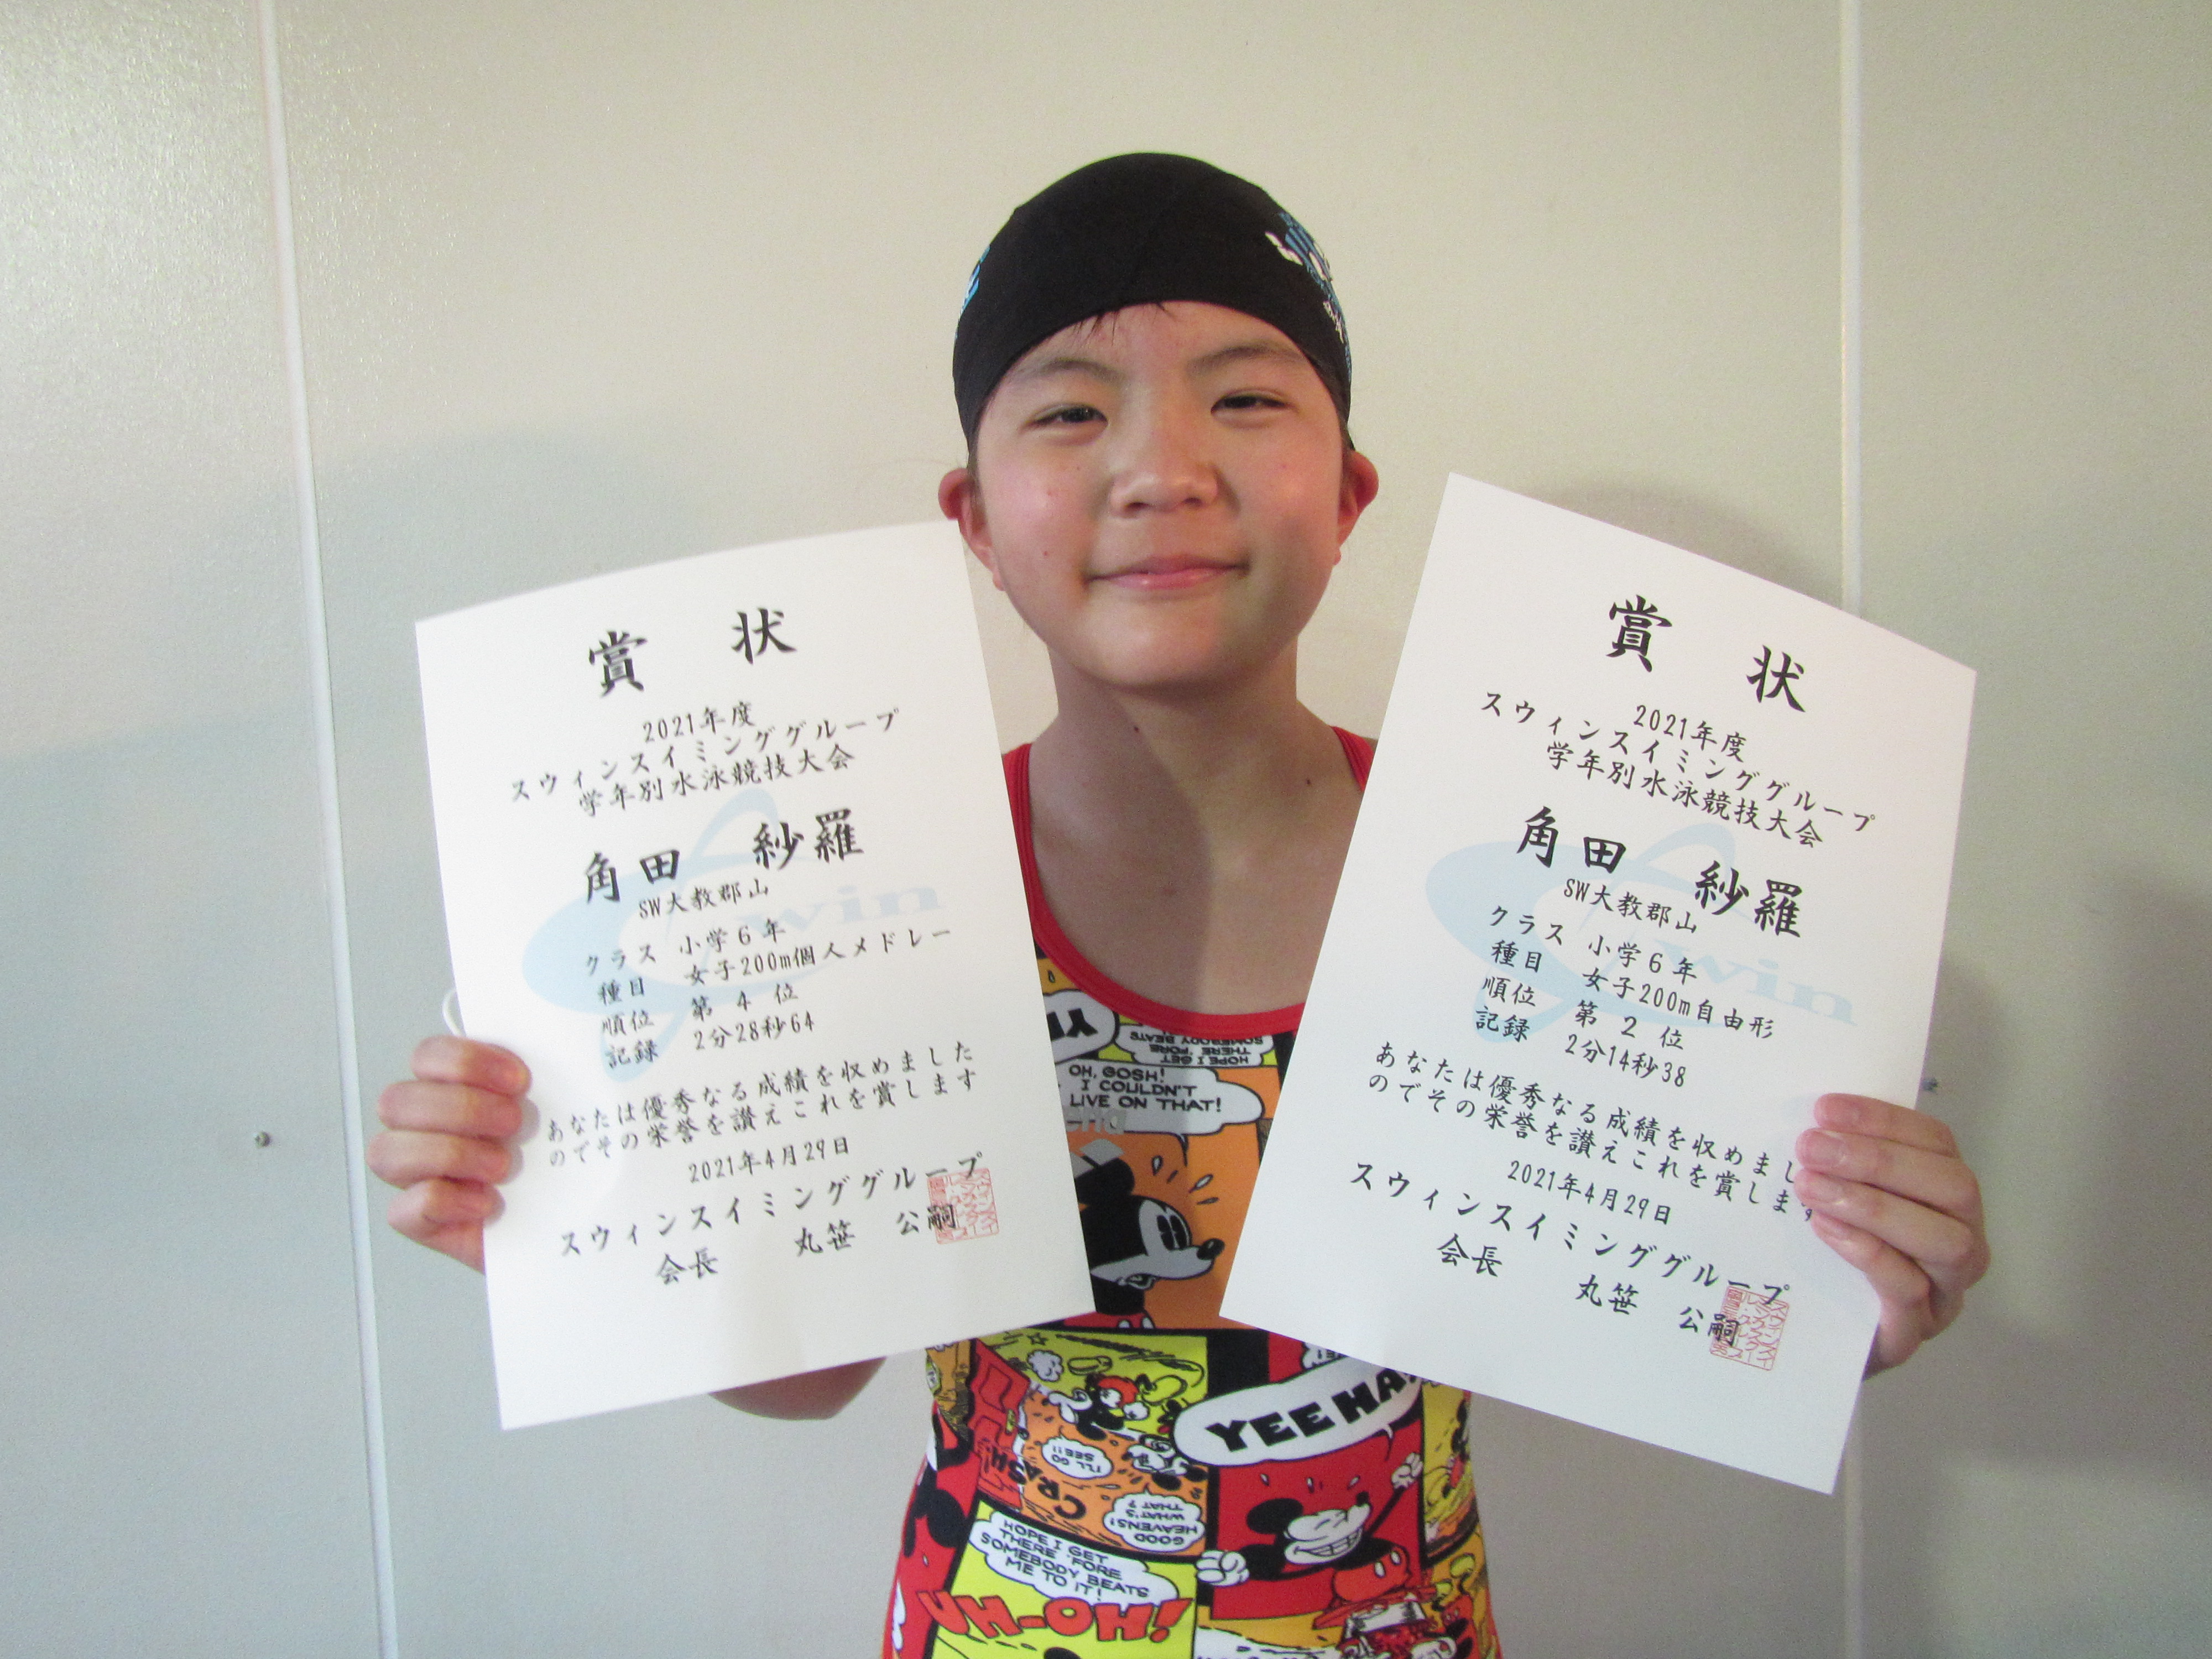 賞 状
2021年度
スウィンスイミンググループ
学年別水泳競技大会
角田 紗羅
SW大教郡山
クラス 小学6年
種目 女子200m個人メドレー
順位 第 4 位
記録 2分28秒64
あなたは優秀なる成績を収めました
のでその栄誉を讃えこれを賞します
2021年4月29日
スウィンスイミンググループ
会長 丸笹 公嗣
win
賞 状
2021年度
スウィンスイミンググループ
学年別水泳競技大会
角田 紗羅
SW大教郡山
クラス 小学6年
種目 女子200m自由形
順位 第 2 位
記録 2分14秒38
あなたは優秀なる成績を収めまし
のでその栄誉を讃えこれを賞しま
2021年4月29日
スウィンスイミンググループ
会長 丸笹 公嗣
win
HOPE I GET
THERE 'FORE
SOMEBODY BEATS
OH, GOSH!
I COULDN'T
LIVE ON THAT!
YEE HA
I'LL GO
SEE!!
CRASH!
GOOD
HEAVENS!
WHAT'S
THAT?
HOPE I GET
THERE 'FORE
SOMEBODY BEATS
ME TO IT!
HO-HO!